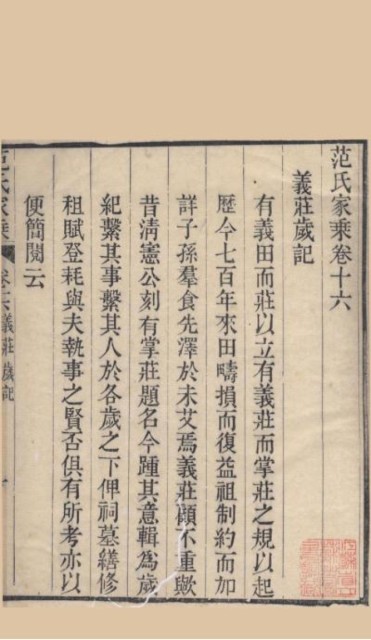 范氏家乘卷十六
義莊歲記
有義田而莊以立有義莊而掌莊之規以起
歷今七百年來田疇損而復益祖制約而加
詳子孫羣食先澤於未艾焉義莊顧不重歟
昔淸憲公刻有掌莊題名今踵其意輯為歲
紀繫其事繫其人於各歲之下俾祠墓繕修
租賦登耗與夫執事之賢否俱有所考亦以
便簡閱云
范氏家乘 卷十六 義莊歲記 一